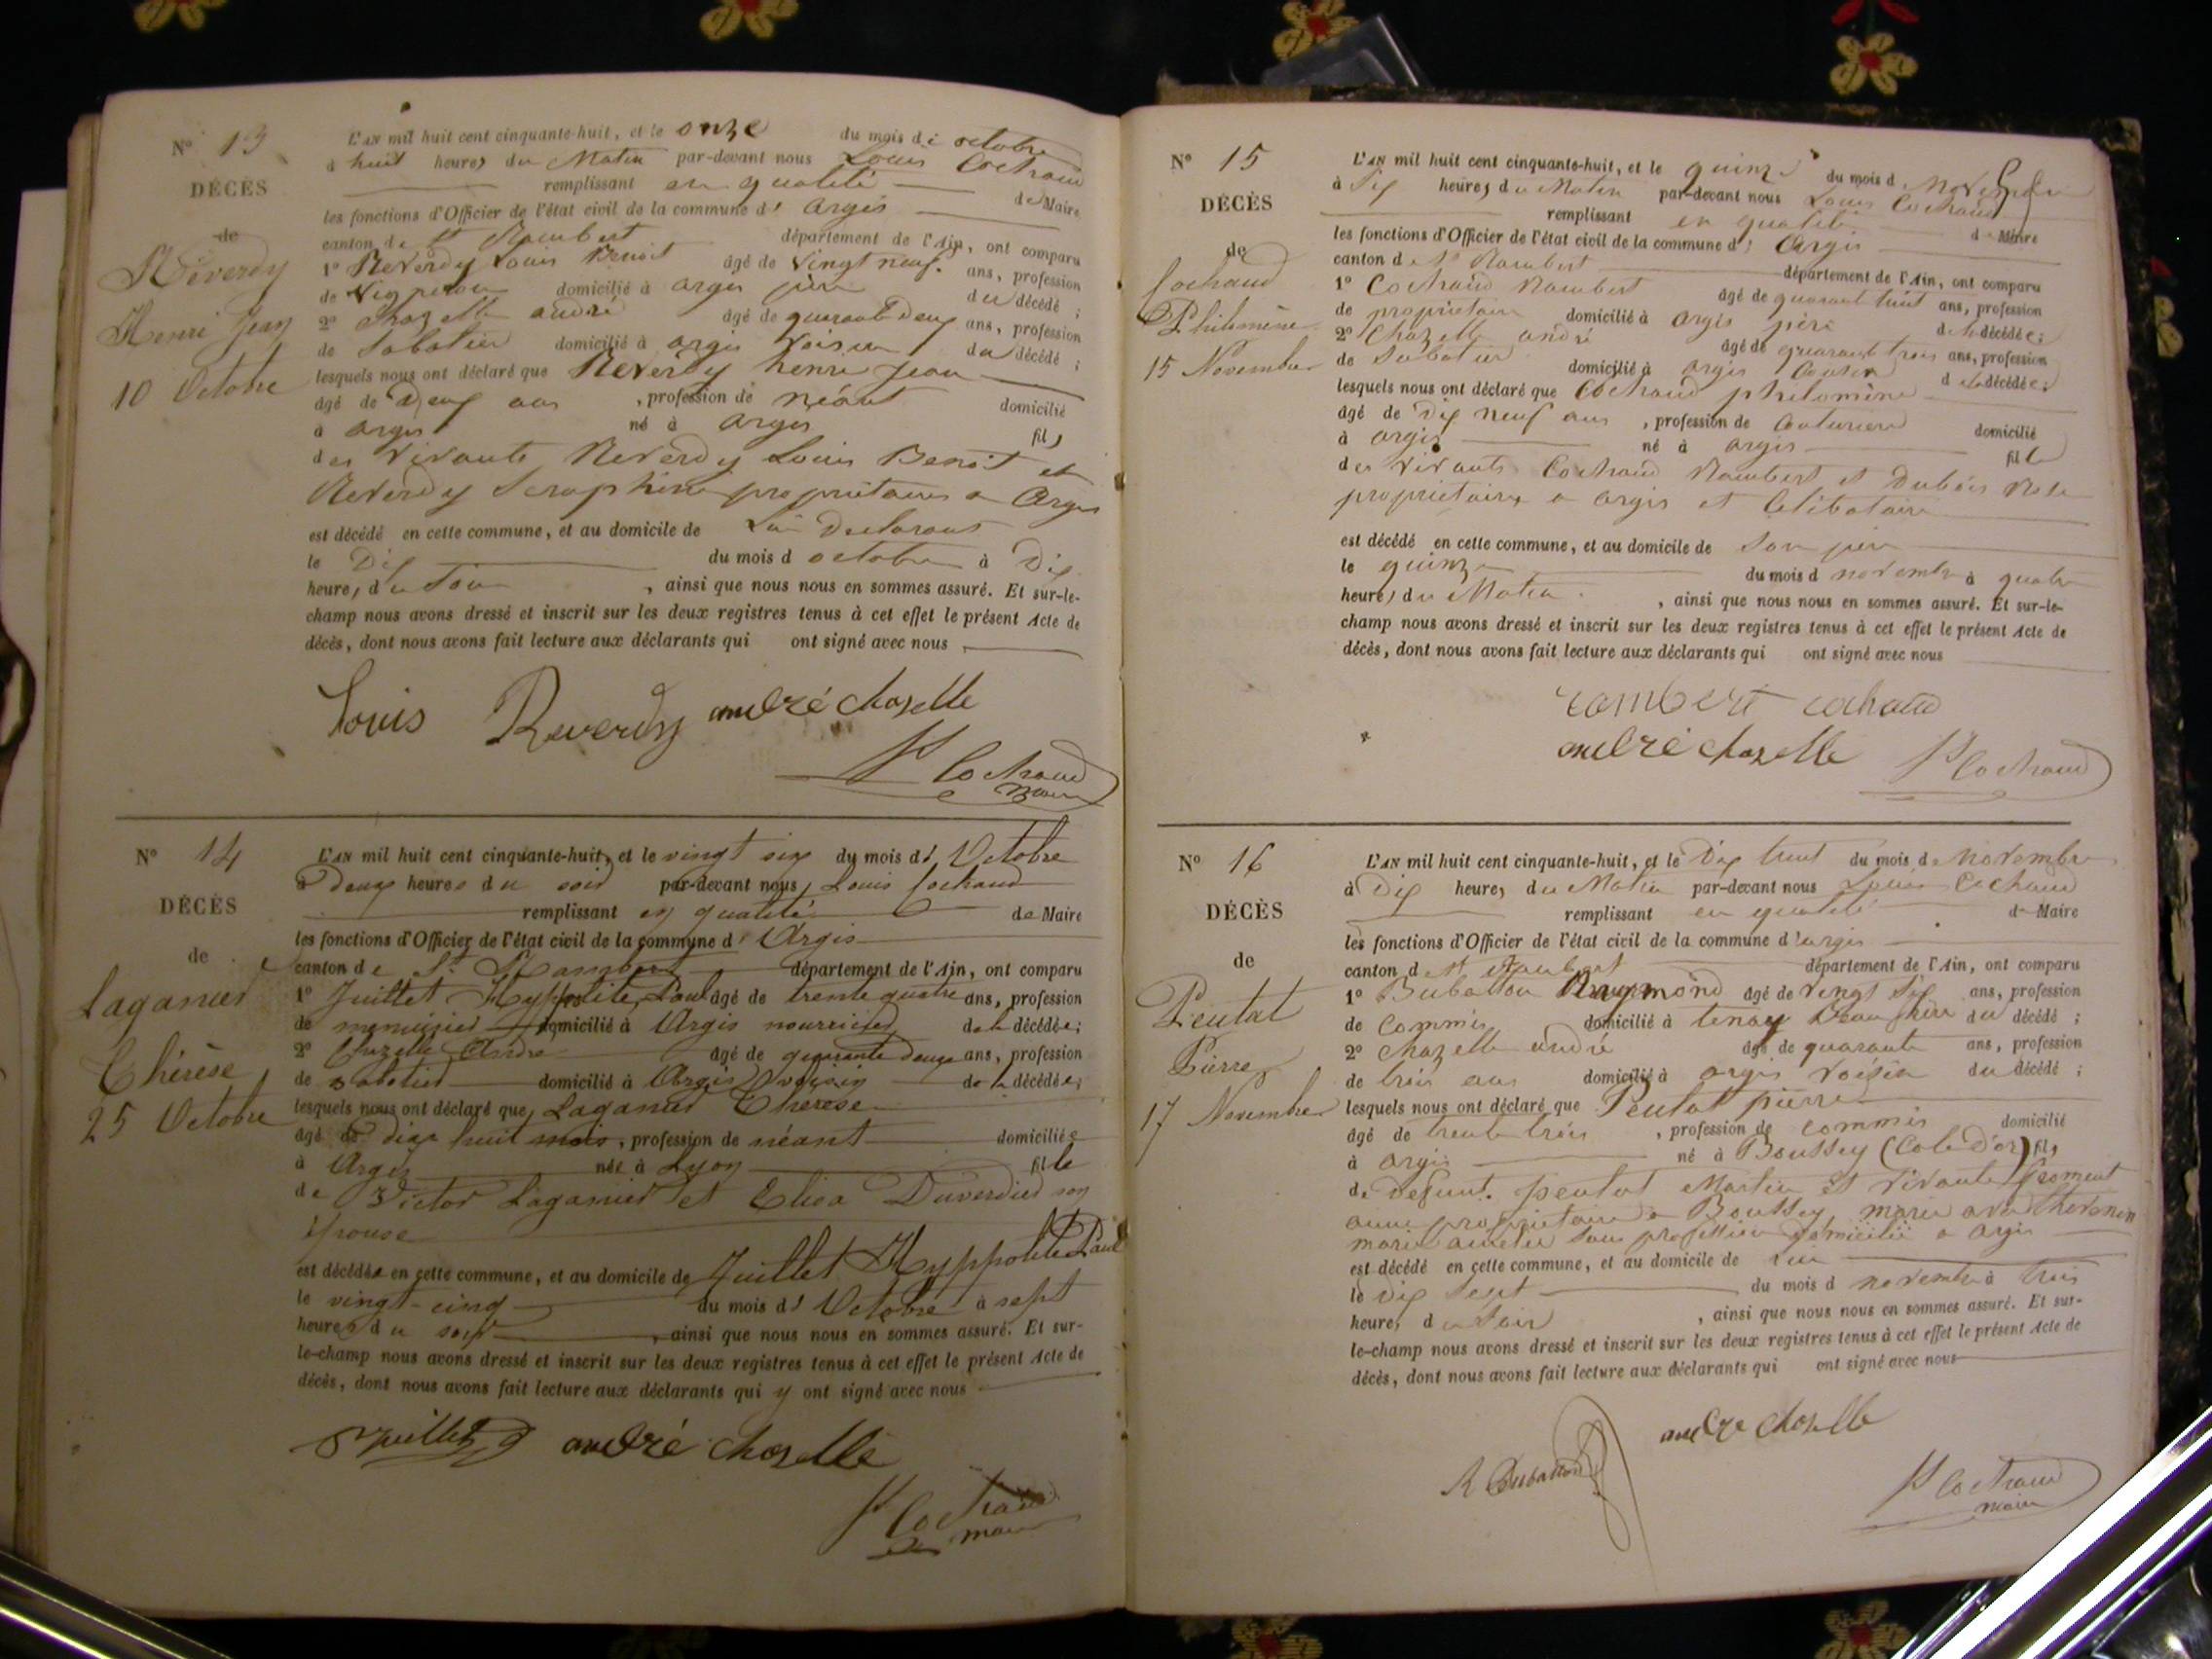 N° 13
DÉCÈS
de
Réverdy
Henri Jean
10 Octobre
L'AN mil huit cent cinquante-huit, et le onze du mois de octobre
à huit heures du Matin par-devant nous Louis Cochaud
remplissant en qualité de Maire
les fonctions d'Officier de l'état civil de la commune d' Argis
canton de St Rambert département de l'Ain, ont comparu
1° Reverdy Louis Benoit âgé de vingt neuf ans, profession
de Vigneron domicilié à argis père du décédé ;
2° Chazelle andré âgé de quarante deux ans, profession
de Sabotier domicilié à argis Voisin du décédé ;
lesquels nous ont déclaré que Reverdy henri Jean
âgé de Deux ans , profession de néant domicilié
à argis né à argis fils
des vivants Reverdy Louis Benoit et
Reverdy Seraphine propriétaires a Argis
est décédé en cette commune, et au domicile de
le Dix du mois d octobre à Dix
heures du Soir , ainsi que nous nous en sommes assuré. Et sur-le-
champ nous avons dressé et inscrit sur les deux registres tenus à cet effet le présent Acte de
décès, dont nous avons fait lecture aux déclarants qui ont signé avec nous
Louis Reverdy andré chazelle
Ls Cochaud
maire
N° 14
DÉCÈS
de
Laganier
Thérèse
25 Octobre
L'AN mil huit cent cinquante-huit, et le vingt six du mois d' Octobre
à Deux heures du soir par-devant nous Louis Cochaud
remplissant en qualité de Maire
les fonctions d'Officier de l'état civil de la commune d' Argis
canton de St Rambert département de l'Ain, ont comparu
1° Juillet Hyppolite Paul âgé de trente quatre ans, profession
de menuisier domicilié à Argis nourricier de la décédée;
2° Chazelle André âgé de quarante deux ans, profession
de sabotier domicilié à Argis voisin de la décédée;
lesquels nous ont déclaré que Laganier Thérèse
âgé de dix huit mois, profession de néant domiciliée
à Argis née à Lyon fille
de Victor Laganier et Elisa Duverdier son
épouse
est décédée en cette commune, et au domicile de Juillet Hyppolite Paul
le vingt-cinq du mois d' Octobre à sept
heures du soir , ainsi que nous nous en sommes assuré. Et sur-
le-champ nous avons dressé et inscrit sur les deux registres tenus à cet effet le présent Acte de
décès, dont nous avons fait lecture aux déclarants qui y ont signé avec nous
juillet andré chazelle
Ls Cochaud
maire
N° 15
DÉCÈS
de
Cochaud
Philomène
15 Novembre
L'AN mil huit cent cinquante-huit, et le quinze du mois d Novembre
à Dix heures du Matin par-devant nous Louis Cochaud
remplissant en qualité de Maire
les fonctions d'Officier de l'état civil de la commune d' Argis
canton de St Rambert département de l'Ain, ont comparu
1° Cochaud Rambert âgé de quarante huit ans, profession
de propriétaire domicilié à argis père de la décédée;
2° Chazelle andré âgé de quarante trois ans, profession
de Sabotier domicilié à argis Cousin de la décédée;
lesquels nous ont déclaré que Cochaud philomène
âgé de Dix neuf ans , profession de Couturière domicilié
à argis né à argis fille
des vivants Cochaud Rambert et Dubois Rose
propriétaires a argis et Célibataire
est décédé en cette commune, et au domicile de Son père
le quinze du mois d novembre à quatre
heures du Matin , ainsi que nous nous en sommes assuré. Et sur-le-
champ nous avons dressé et inscrit sur les deux registres tenus à cet effet le présent Acte de
décès, dont nous avons fait lecture aux déclarants qui ont signé avec nous
rambert cochaud
andré chazelle Ls Cochaud
N° 16
DÉCÈS
de
Peutat
Pierre
17 Novembre
L'AN mil huit cent cinquante-huit, et le Dix huit du mois de Novembre
à Dix heures du Matin par-devant nous Louis Cochaud
remplissant en qualité de Maire
les fonctions d'Officier de l'état civil de la commune d'argis
canton de St Rambert département de l'Ain, ont comparu
1° Bubatton Raymond âgé de vingt Six ans, profession
de Commis domicilié à tenay Beau frère du décédé ;
2° Chazelle andré âgé de quarante ans, profession
de trois ans domicilié à argis Voisin du décédé ;
lesquels nous ont déclaré que Peutat pierre
âgé de trente trois , profession de commis domicilié
à argis né à Boussey (Cote d'or) fils
de defunt peutat Martin et vivante froment
anne propriétaire a Boussey, marié avec thevenin
marie sans profession domicilié a argis
est décédé en cette commune, et au domicile de lui
le dix Sept du mois d novembre à trois
heures du Soir , ainsi que nous nous en sommes assuré. Et sur-
le-champ nous avons dressé et inscrit sur les deux registres tenus à cet effet le présent Acte de
décès, dont nous avons fait lecture aux déclarants qui ont signé avec nous
andré chazelle
R Bubatton
Ls Cochaud
maire